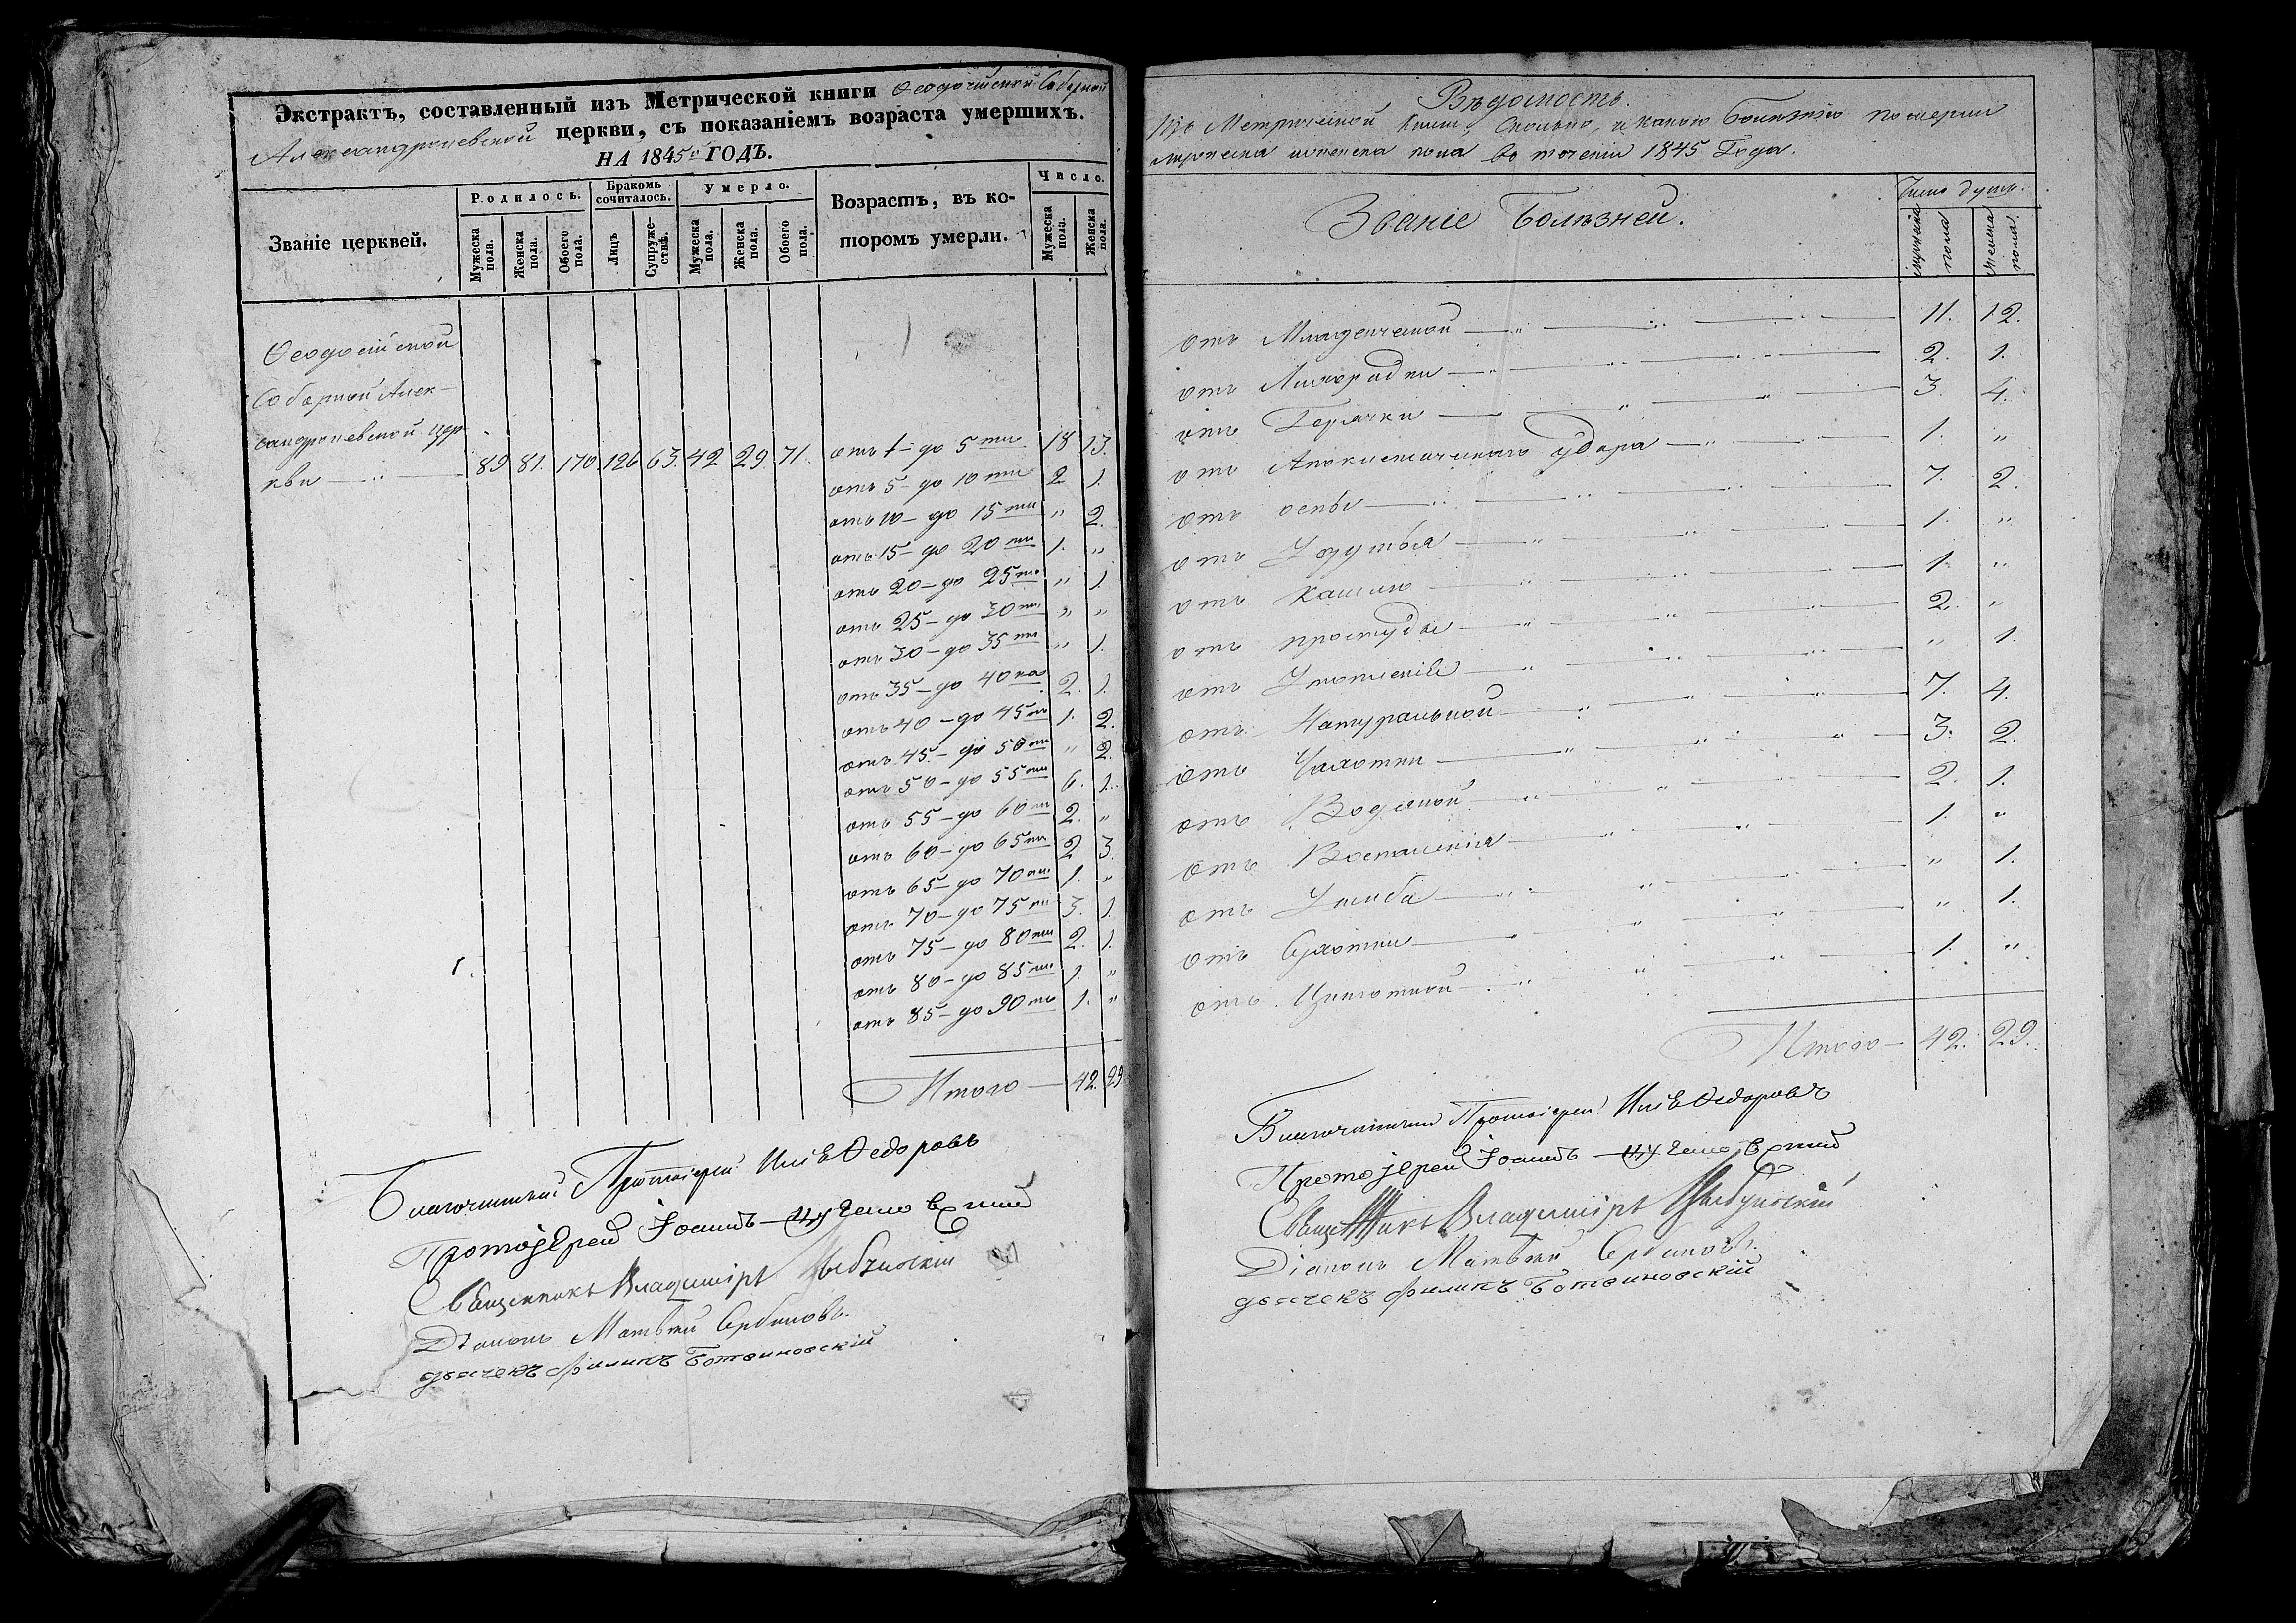 Экстрактъ, составленный изъ Метрической книги Ѳеодосійской Соборной
Александроневской церкви, съ показаніемъ возраста умершихъ.
НА 1845й ГОДЪ.
Званіе церквей.
Родилось.
Мужеска пола.
Женска пола.
Обоего пола.
Бракомъ сочиталось.
Лицъ
Супружествъ.
Умерло.
Мужеска пола.
Женска пола.
Обоего пола.
Возрастъ, въ которомъ умерли.
Число.
Мужеска пола.
Женска пола.
Ѳеодосійской
Соборной Алек-
сандроневской цер
кви 89 81. 170. 126 63. 42 29. 71.
отъ 1 - до 5ти 18 13.
отъ 5 - до 10ти 2 1.
отъ 10 - до 15ти " 2.
отъ 15 - до 20ти 1. "
отъ 20 - до 25ти " 1.
отъ 25 - до 30ти " "
отъ 30 - до 35ти " 1.
отъ 35 - до 40ка 2. 1.
отъ 40 - до 45ти 1. 2.
отъ 45 - до 50ти " 2.
отъ 50 - до 55ти 6. 1.
отъ 55 - до 60ти 2. "
отъ 60 - до 65ти 2 3.
отъ 65 - до 70ти 1. "
отъ 70 - до 75ти 3. 1.
отъ 75 - до 80ти 2. 1.
отъ 80 - до 85ти 1. "
отъ 85 - до 90то 1. "
Итого - 42. 29
Благочинный Протоіерей Иліѣ Ѳедоровъ
Протоіерей Іоаннъ
Священникъ Владиміръ
Діаконъ Матвѣй Сербиновъ.
дьячекъ Филипъ Ботвиновскій
Вѣдомость.
Изъ Метрической книги, сколько, и какою болѣзнію померли
мужеска и женска пола въ теченіи 1845 Года.
Званіе Болѣзней.
Число душъ.
мужеска пола
женска пола.
отъ Младенческой 11. 12.
отъ Лихорадки 2. 1.
отъ Горячки 3. 4.
отъ Апоклетического удара 1. "
отъ оспы 7. 2.
отъ Удушья 1. "
отъ кашлю 1. "
отъ простуды 2. "
отъ " 1.
отъ Натуральной 7. 4.
отъ Чахотки 3. 2.
отъ Водяной 2. 1.
отъ Воспаленія 1. "
отъ Ушиба " 1.
отъ Сухотки " 1.
отъ Цынготной 1. "
Итого - 42. 29.
Благочинный Протоіерей Иліѣ Ѳедоровъ
Протоіерей Іоаннъ
Священникъ Владиміръ
Діаконъ Матвѣй Сербиновъ.
дьячекъ Филипъ Ботвиновскій